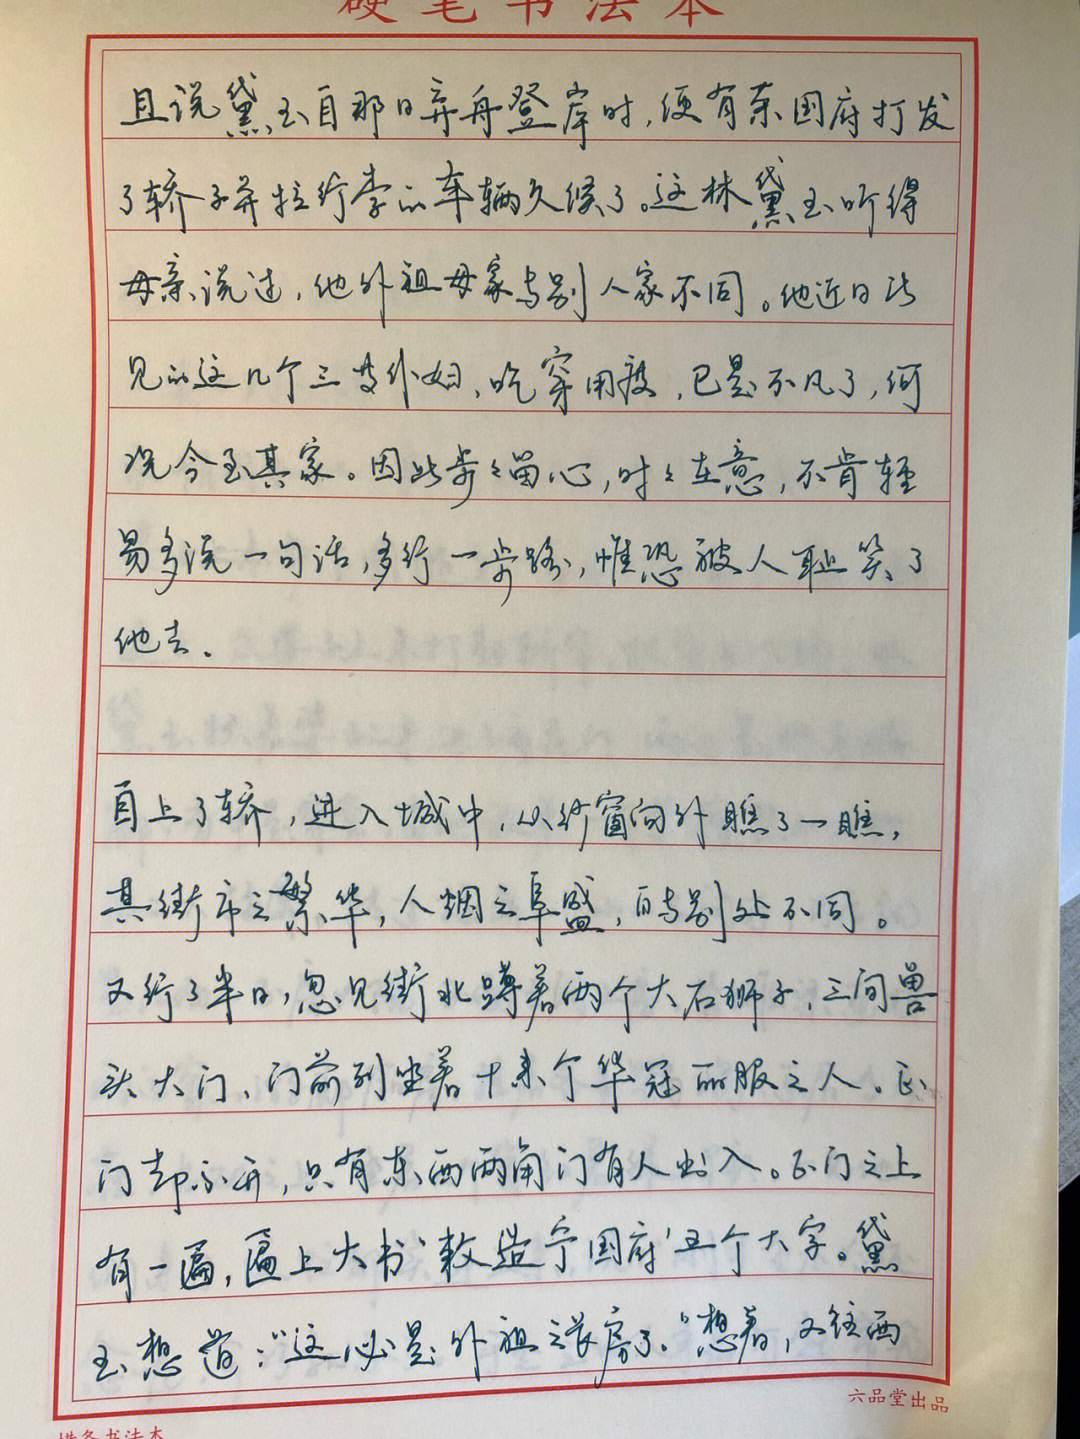 硬笔书法本
且说黛玉自那日弃舟登岸时,便有荣国府打发
了轿子并拉行李的车辆久候了。这林黛玉听得
母亲说过,他外祖母家与别人家不同。他近日所
见的这几个三等仆妇,吃穿用度,已是不凡了,何
况今至其家。因此步々留心,时々在意,不肯轻
易多说一句话,多行一步路,惟恐被人耻笑了
他去。
自上了轿,进入城中,从纱窗向外瞧了一瞧,
其街市之繁华,人烟之阜盛,自与别处不同。
又行了半日,忽见街北蹲着两个大石狮子,三间兽
头大门,门前列坐着十来个华冠丽服之人。正
门却不开,只有东西两角门有人出入。正门之上
有一匾,匾上大书‘敕造宁国府’五个大字。黛
玉想道:“这必是外祖之长房了。”想着,又往西
六品堂出品